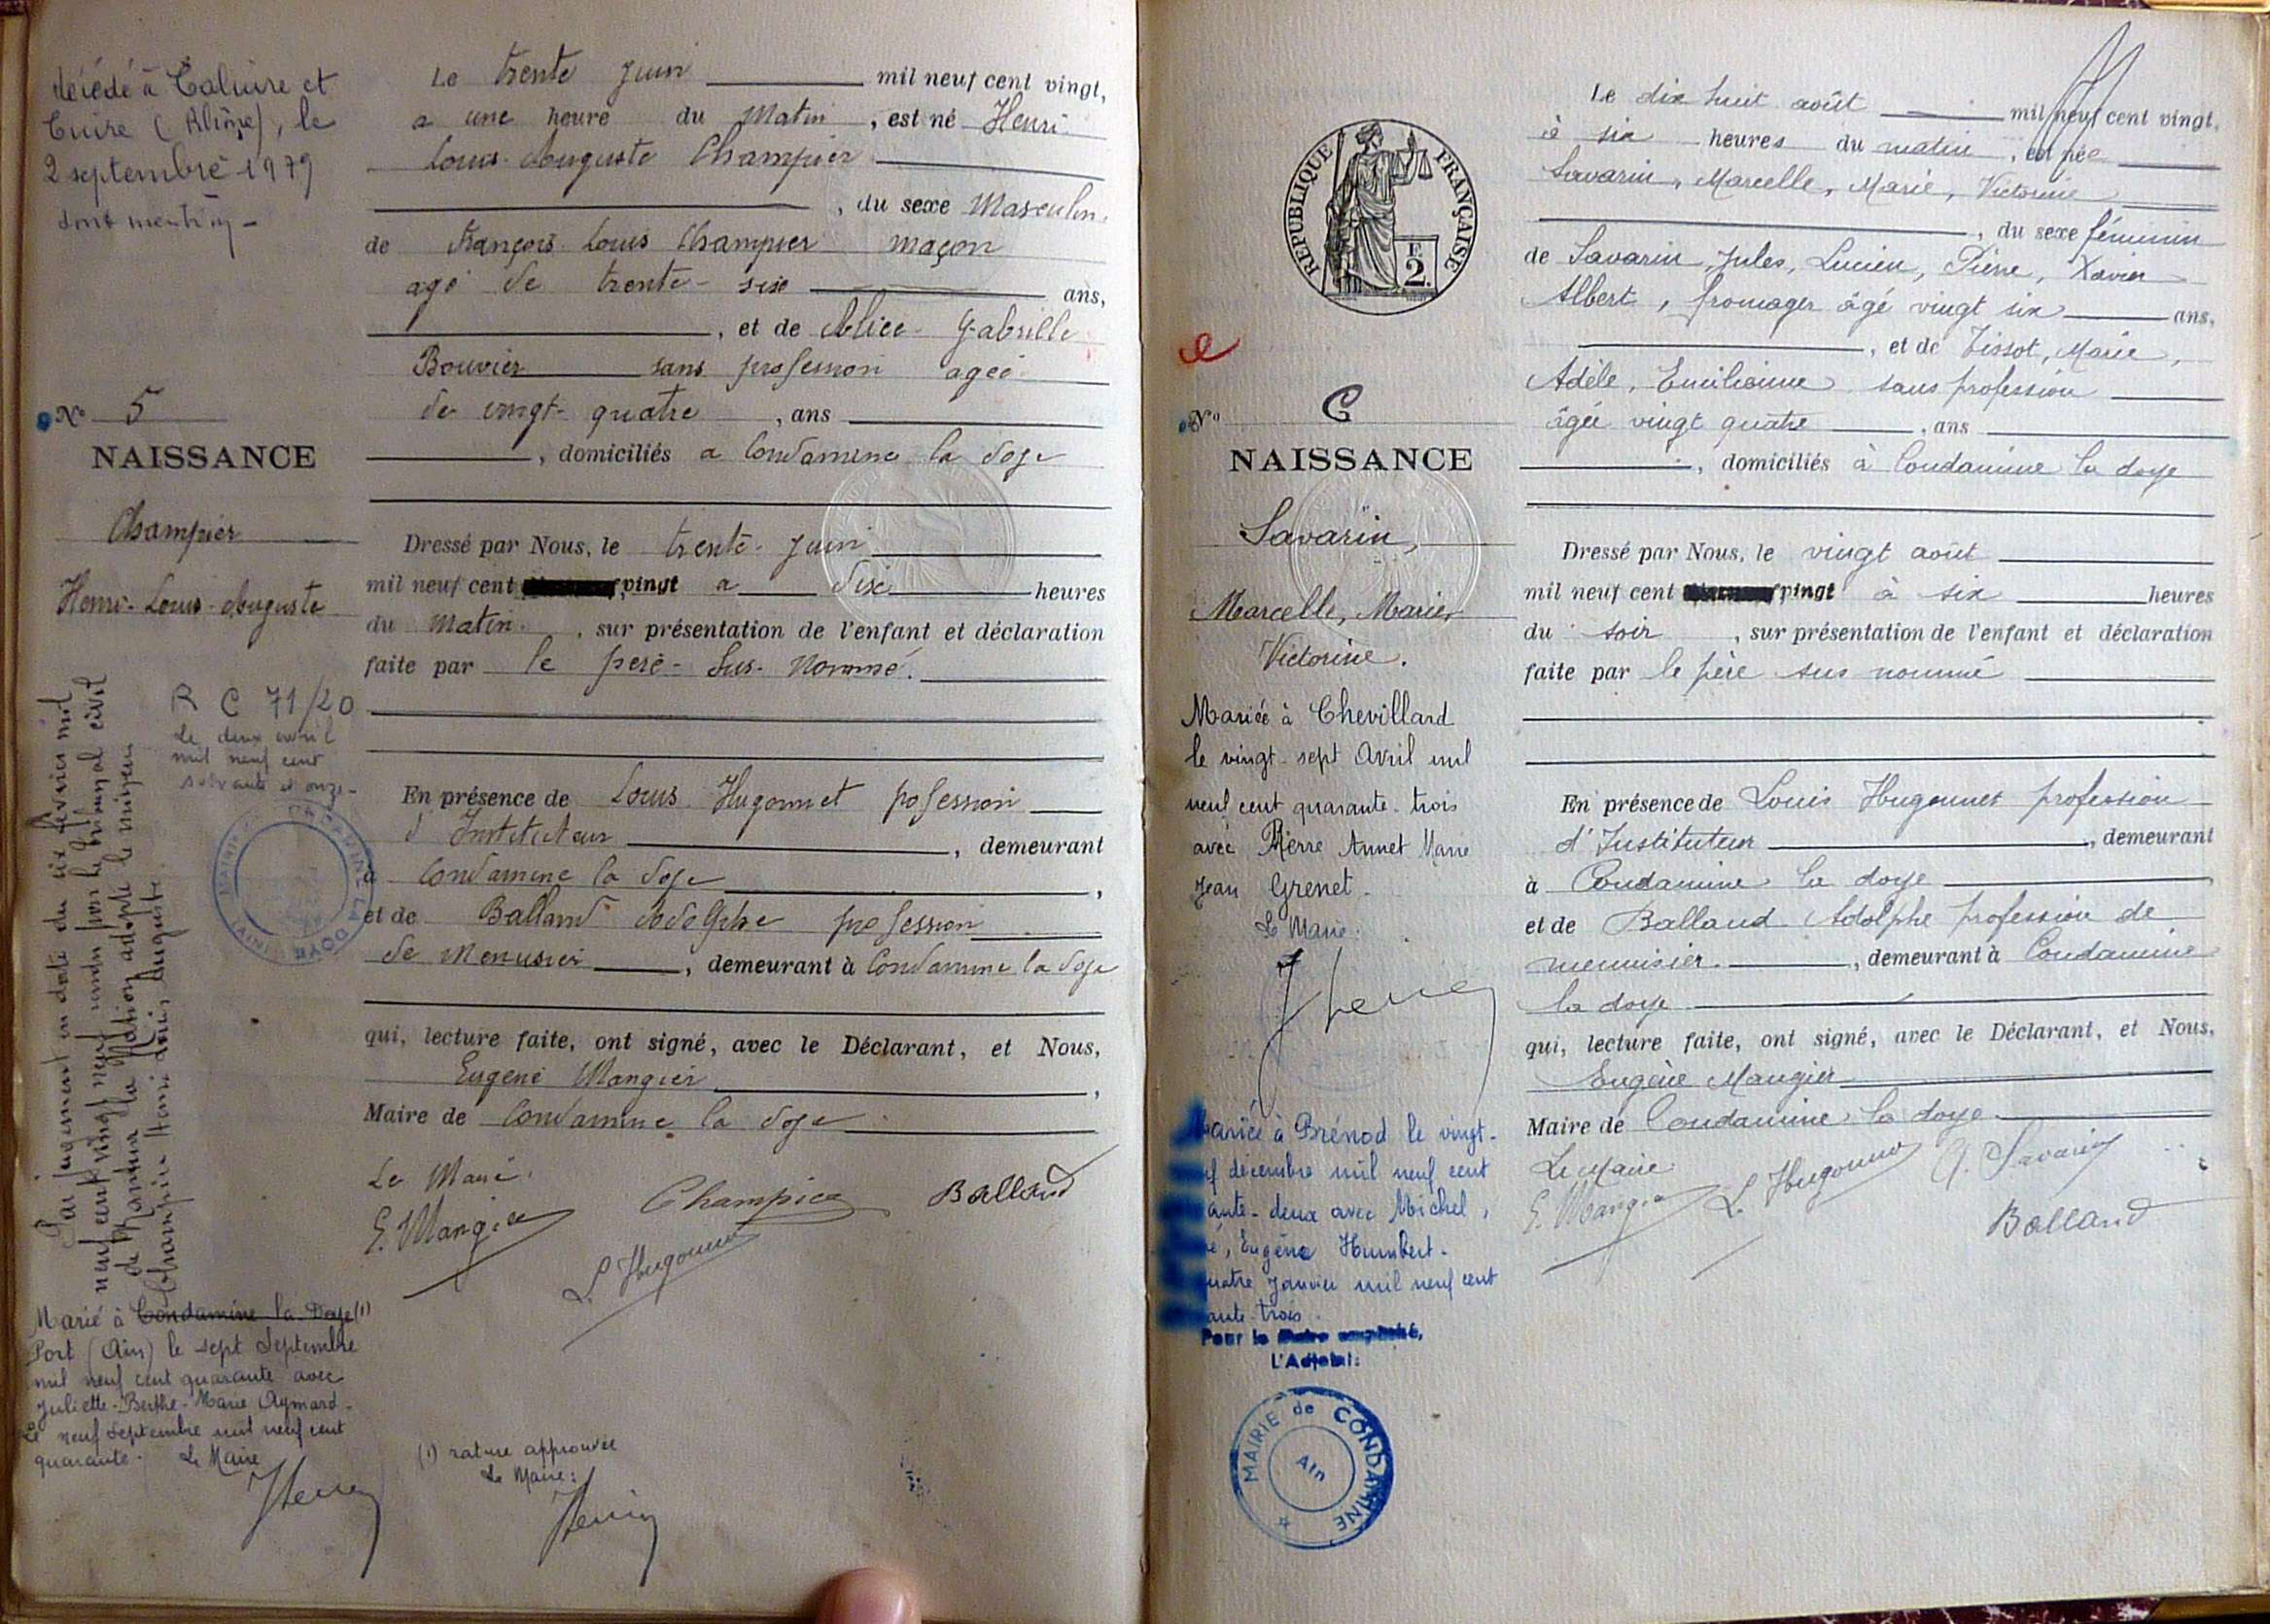 décédé à Caluire et
Cuire (Rhône), le
2 septembre 1979
dont mention -
N° 5
NAISSANCE
Champier
Henri-Louis-Auguste
R C 71/20
Le deux avril
mil neuf cent
soixante et onze-
Par jugement en date du six février mil
neuf cent vingt neuf rendu par le tribunal civil
de Nantua la Nation adopte le mineur
Champier Henri Louis Auguste
Marié à Condamine la Doye (1)
Port (Ain) le sept Septembre
mil neuf cent quarante avec
Juliette-Berthe-Marie Aymard-
Le neuf Septembre mil neuf cent
quarante. Le Maire
Le trente Juin mil neuf cent vingt,
a une heure du Matin, est né Henri
Louis-Auguste Champier
, du sexe Masculin.
de François Louis Champier maçon
agé de trente-six ans,
, et de Alice Gabrille
Bouvier sans profession agée
de vingt-quatre, ans
, domiciliés a Condamine la Doye
Dressé par Nous, le trente Juin
mil neuf cent vingt a dix heures
du Matin, sur présentation de l'enfant et déclaration
faite par le père-Sus-Nommé.
En présence de Louis Hugonnet pofession
d'Instituteur, demeurant
à Condamine la Doye,
et de Balland Adolphe profession
de Menusier, demeurant à Condamine la Doye
qui, lecture faite, ont signé, avec le Déclarant, et Nous,
Eugene Mangier,
Maire de Condamine la Doye
Le Maire.
E. Mangier Champier Balland
L. Hugonnet
(1) rature approuvée
Le Maire:
REPUBLIQUE FRANÇAISE
2 F.
N° 6
NAISSANCE
Savarin,
Marcelle, Marie,
Victorine.
Mariée à Chevillard
le vingt-sept Avril mil
neuf cent quarante-trois
avec Pierre Annet Marie
Jean Grenet.
Le Maire:
Mariée à Brénod le vingt-
décembre mil neuf cent
ante-deux avec Michel,
, Eugène Humbert-
quatre Janvier mil neuf cent
ante-trois.
Pour le Maire empêché,
L'Adjoint:
MAIRIE de CONDAMINE
Ain
Le dix huit août mil neuf cent vingt,
à six heures du matin, est née
Savarin, Marcelle, Marie, Victorine
, du sexe féminin
de Savarin, Jules, Lucien, Pierre, Xavier
Albert, fromager âgé vingt six ans,
, et de Tissot, Marie,
Adèle, Emilienne sans profession
âgée vingt quatre, ans
, domiciliés à Condamine la doye
Dressé par Nous, le vingt août
mil neuf cent vingt à six heures
du soir, sur présentation de l'enfant et déclaration
faite par le père sus nommé
En présence de Louis Hugonnet profession
d'Instituteur, demeurant
à Condamine la doye
et de Balland Adolphe profession de
menuisier., demeurant à Condamine
la doye
qui, lecture faite, ont signé, avec le Déclarant, et Nous,
Eugène Mangier
Maire de Condamine la doye
Le Maire
E. Mangier L. Hugonnet J. Savarin
Balland